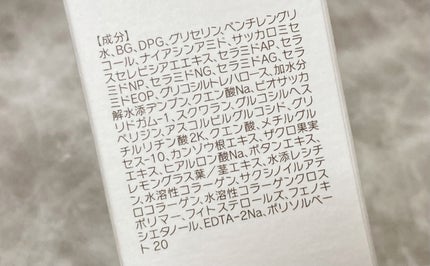 【成分】
水、BG、DPG、グリセリン、ペンチレングリ
コール、ナイアシンアミド、サッカロミセ
スセレビシアエエキス、セラミドAP、セラ
ミドNP、セラミドNG、セラミドAG、セラ
ミドEOP、グリコシルトレハロース、加水分
解水添デンプン、クエン酸Na、ビオサッカ
リドガム-1、スクワラン、グルコシルヘス
ペリジン、アスコルビルグルコシド、グリ
チルリチン酸2K、クエン酸、メチルグル
セス-10、カンゾウ根エキス、ザクロ果実
エキス、ヒアルロン酸Na、ボタンエキス、
レモングラス葉/茎エキス、水添レシチ
ン、水溶性コラーゲン、サクシノイルアテ
ロコラーゲン、水溶性コラーゲンクロス
ポリマー、フィトステロールズ、フェノキ
シエタノール、EDTA-2Na、ポリソルベー
ト20